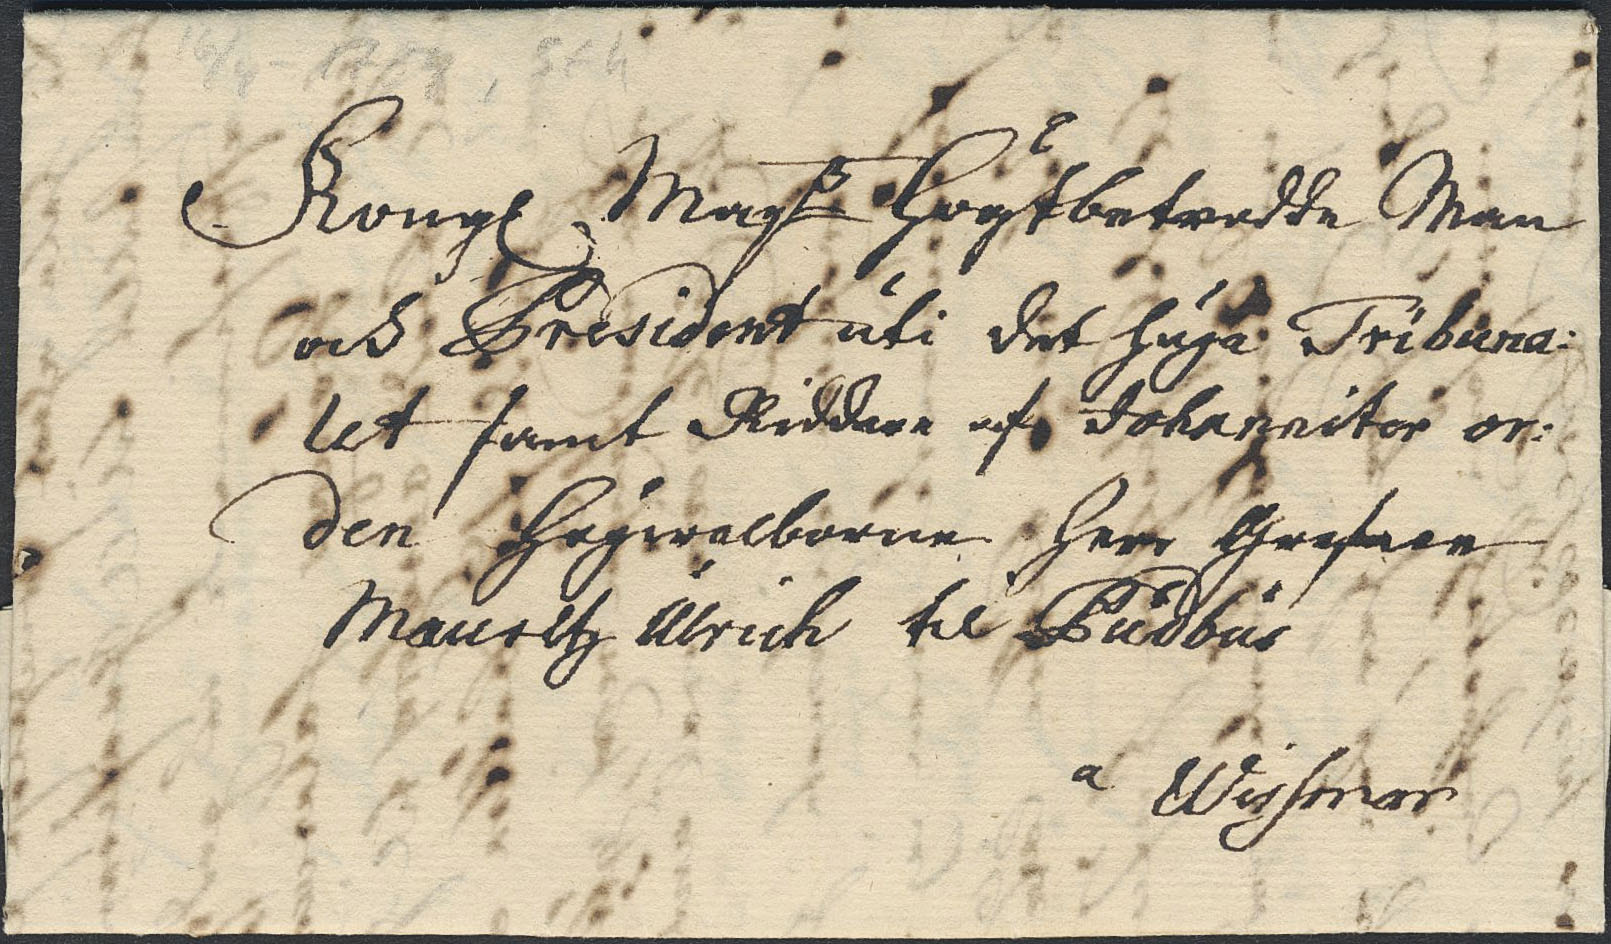 Kongl Maytz Högtbetrodde Man
och President uti det höga Tribuna:
let samt Riddare af Johanniter or:
den Högwälborne Herr Grefwe
Mauritz Ulrich til Pudbus
a Wissmar